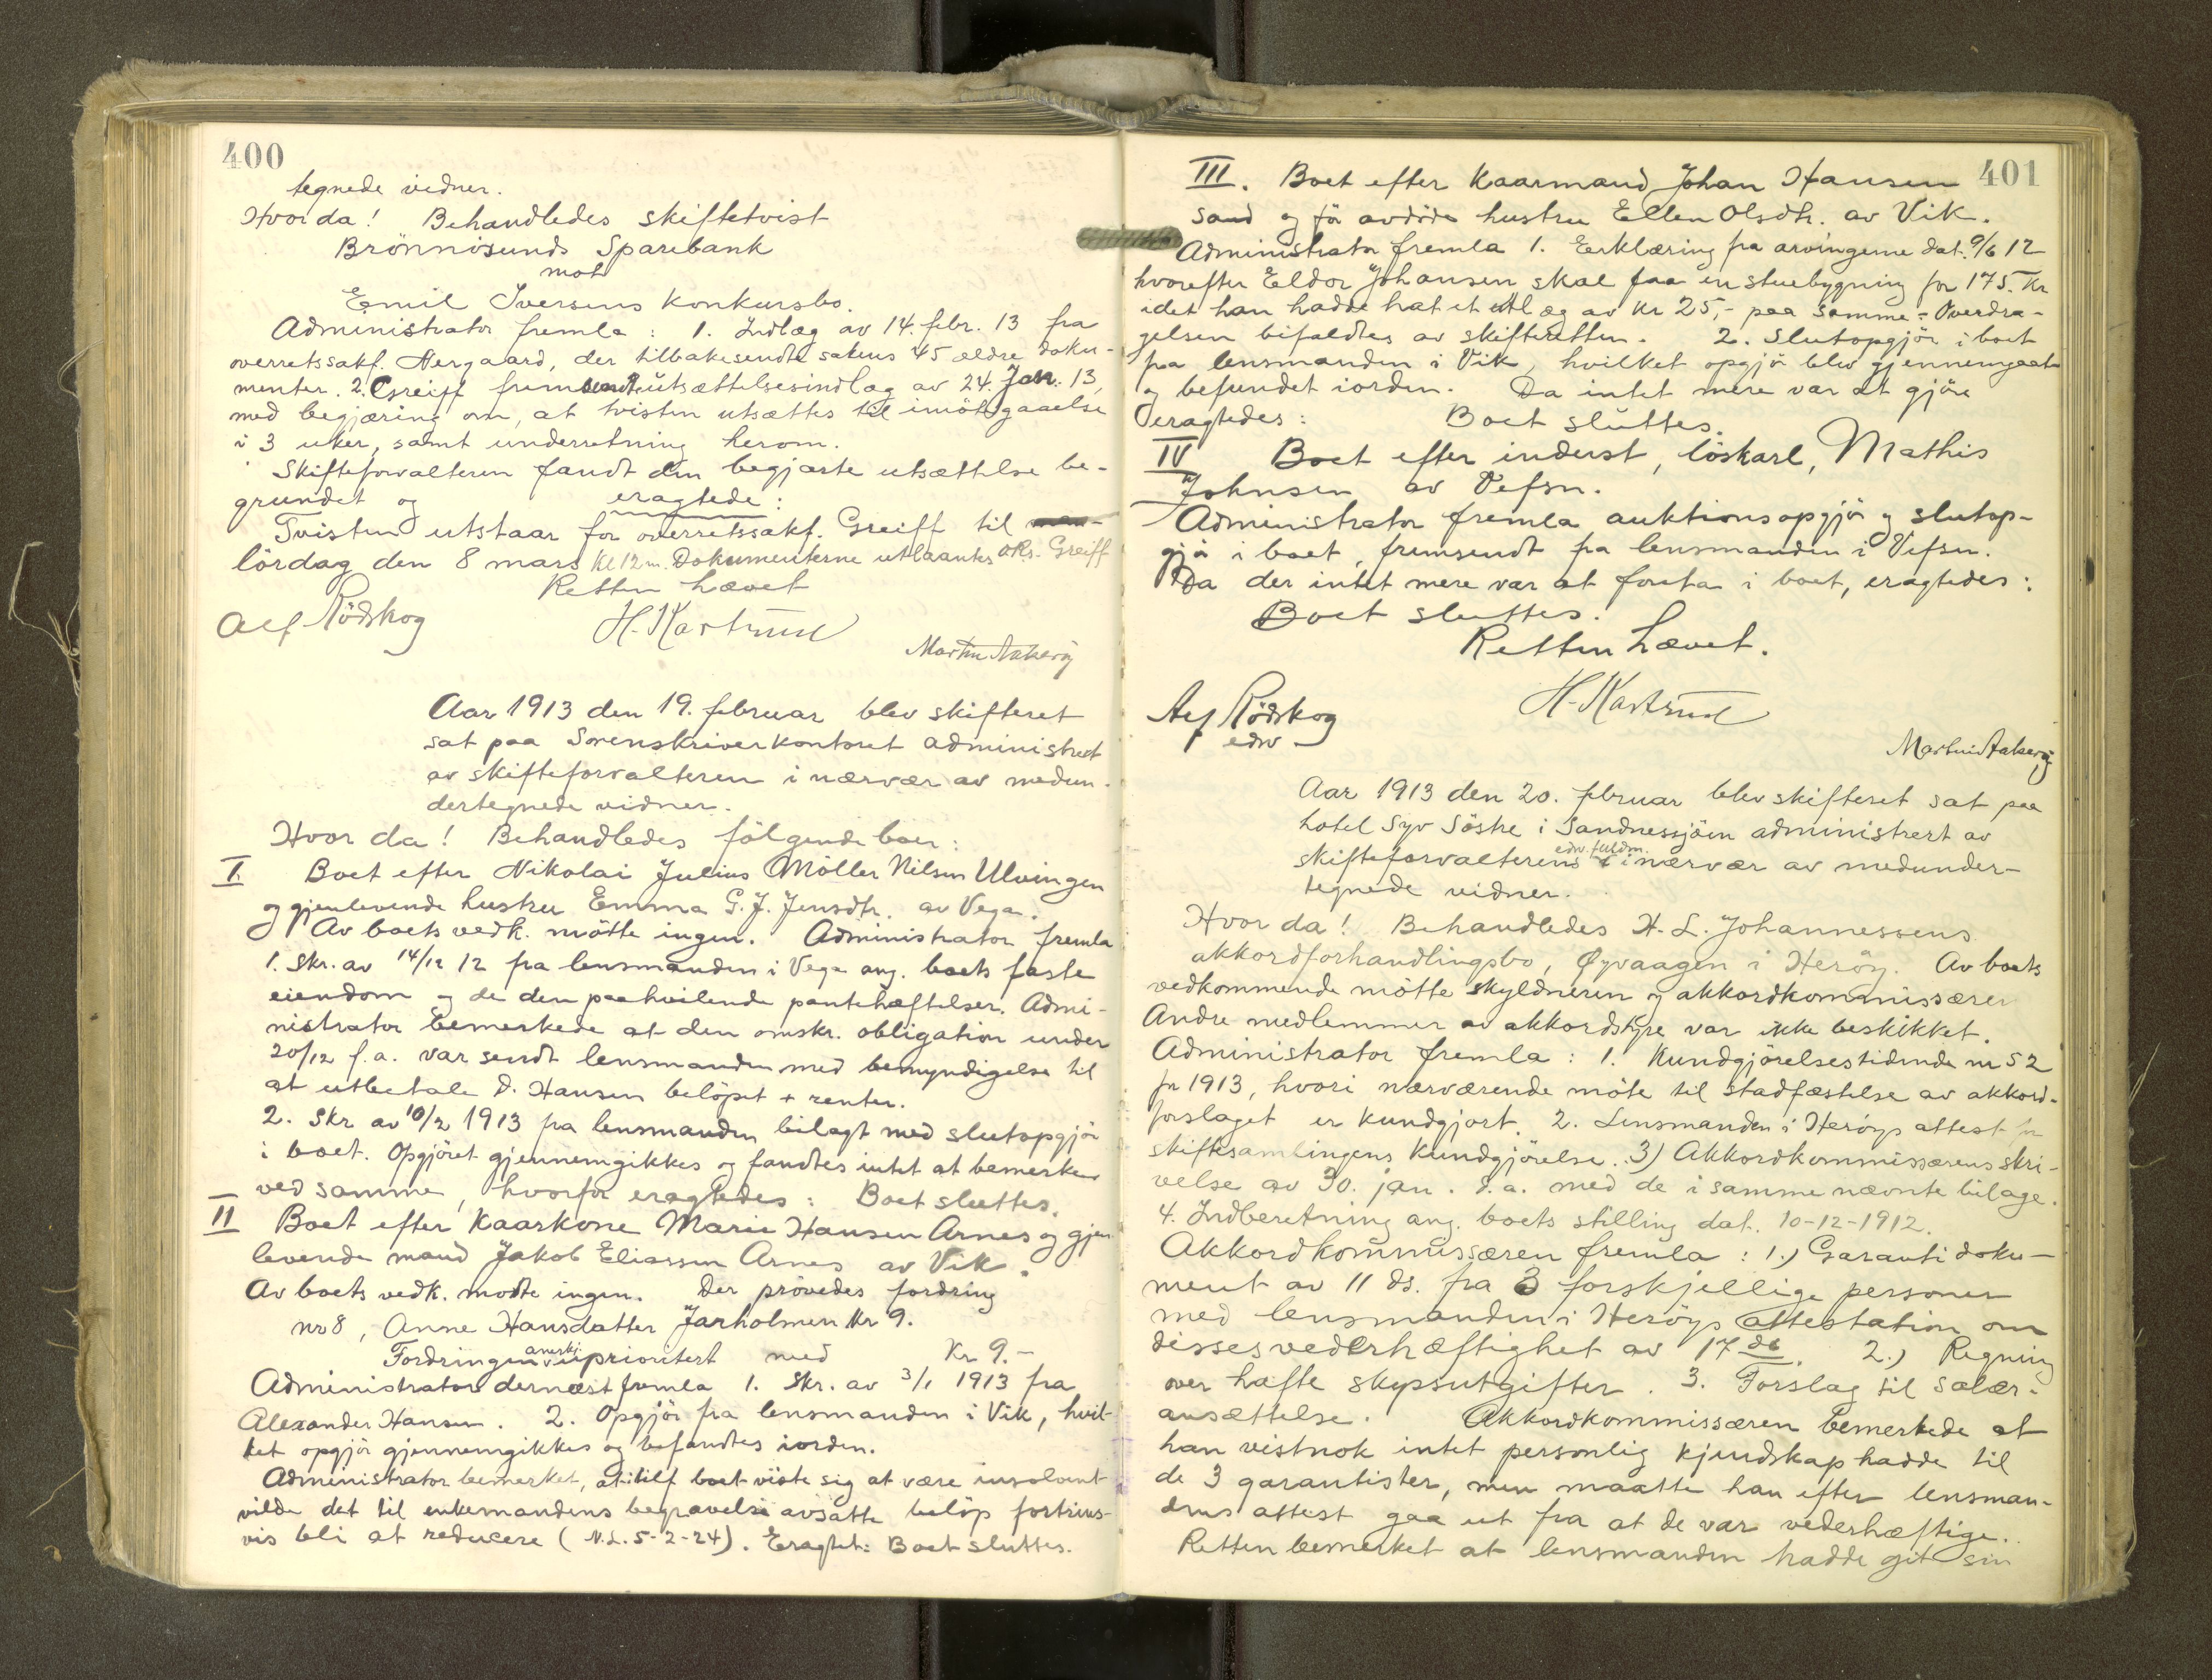 400
tegnede vidner.
Hvor da! Behandledes skiftetvist
Brönnösunds Sparebank
mot
Emil Iversens konkursbo.
Administrator fremla: 1. Indlæg av 14. febr. 13 fra
overretssakf. Aergaard, der tilbakesendte sakens 45 ældre doku-
menter. 2. Greiff fremsendt utsættelsesindlæg av 24. Jan. 13,
med begjæring om, at tvisten utsættes til imötegaaelse
i 3 uker, samt underretning herom.
Skifteforvalteren fandt den begjærte utsættelse be-
grundet og eragtede:
Tvisten utstaar for overretssakf. Greiff til
lördag den 8 mars kl 12 m. Dokumenterne utlaantes ORs. Greiff
Retten hævet
Alf Rödskog H. Kastrud
Martin Aakerøj
Aar 1913 den 19. februar blev skifteret
sat paa Sorenskriverkontoret administrert
av skifteforvalteren i nærvær av medun-
dertegnede vidner.
Hvor da! Behandledes fölgende boer:
I. Boet efter Nikolai Julius Möller Nilsen Ulvingen
og gjenlevende hustru Emma G. J. Jensdtr. av Vega.
Av boets vedk. mötte ingen. Administrator fremla
1. Skr. av 14/12 12 fra lensmanden i Vega ang. boets faste
eiendom og de den paahvilende pantehæftelser. Admi-
nistrator bemerkede at den omskr. obligation under
20/12 f.a. var sendt lensmanden med bemyndigelse til
at utbetale D. Hansen belöpet + renter.
2. Skr av 10/2 1913 fra lensmanden bilagt med slutopgjör
i boet. Opgjöret gjennemgikkes og fandtes intet at bemerke
ved samme, hvorfor eragtedes: Boet sluttes.
II Boet efter Kaarkone Marie Hansen Arnes og gjen
levende mand Jakob Eliassen Arnes av Vik.
Av boets vedk. motte ingen. Der prövedes fordring
nr 8, Anne Hansdatter Jarholmen Kr 9.
Fordringen anerkj. uprioritert med Kr 9.-
Administrator dernæst fremla 1. Skr. av 3/1 1913 fra
Alexander Hansen. 2. Opgjör fra lensmanden i Vik, hvil-
ket opgjör gjennemgikkes og befandtes iorden.
Administrator bemerket, at i tilf boet viste sig at være insolvent
vilde det til enkemandens begravelse avsatte belöp fortrins-
vis bli at reducere (N.L. 5-2-24). Eragtet: Boet sluttes.
401
III. Boet efter Kaarmand Johan Hansen
Sand og för avdöde hustru Ellen Olsdtr. av Vik.
Administrator fremla 1. Eerklæring fra arvingerne dat. 9/6 12
hvorefter Eldor Johansen skal faa en stuebygning for 175. Kr
idet han hadde hat et utlæg av Kr 25,- paa samme - Overdra-
gelsen bifaldtes av skifteretten. 2. Slutopgjör i boet
fra lensmanden i Vik, hvilket opgjör blev gjennemgaat
og befundet iorden. Da intet mere var at gjöre
eragtedes: Boet sluttes.
IV Boet efter inderst, löskarl, Mathis
Johnsen av Vefsn.
Administrator fremla auktionsopgjör og slutop-
gjör i boet, fremsendt fra lensmanden i Vefsn.
Da der intet mere var at foreta i boet, eragtedes:
Boet sluttes.
Retten hævet.
H. Kastrud
Alf Rödskog
edsv
Martin Aakerøj
Aar 1913 den 20. februar blev skifteret sat paa
hotel Syv Söstre i Sandnessjöen administrert av
skifteforvalterens edsv. fuldm. i nærvær av medunder-
tegnede vidner.
Hvor da! Behandledes H. L. Johannessens
akkordforhandlingsbo, Øyvaagen i Heröy. Av boets
vedkommende mötte skyldneren og akkordkommissæren
Andre medlemmer av akkordstyre var ikke beskikket.
Administrator fremla: 1. Kundgjörelsestidende nr 52
for 1913, hvori nærværende möte til stadfæstelse av akkord-
forslaget er kundgjort. 2. Lensmanden i Heröys attest for
skiftesamlingens kundgjörelse. 3) Akkordkommissærens skri-
velse av 30. jan. d.a. med de i samme nævnte bilage.
4. Indberetning ang. boets stilling dat. 10-12-1912.
Akkordkommissæren fremla: 1.) Garantidoku-
ment av 11 ds. fra 3 forskjellige personer
med lensmanden i Heröys attestation om
disses vederhæftighet av 17 ds. 2.) Regning
over hafte skyssutgifter. 3. Forslag til salær-
ansættelse. Akkordkommissæren bemerkede at
han vistnok intet personlig kjendskap hadde til
de 3 garantister, men maatte han efter lensman-
dens attest gaa ut fra at de var vederhæftige.
Retten bemerket at lensmanden hadde git sin